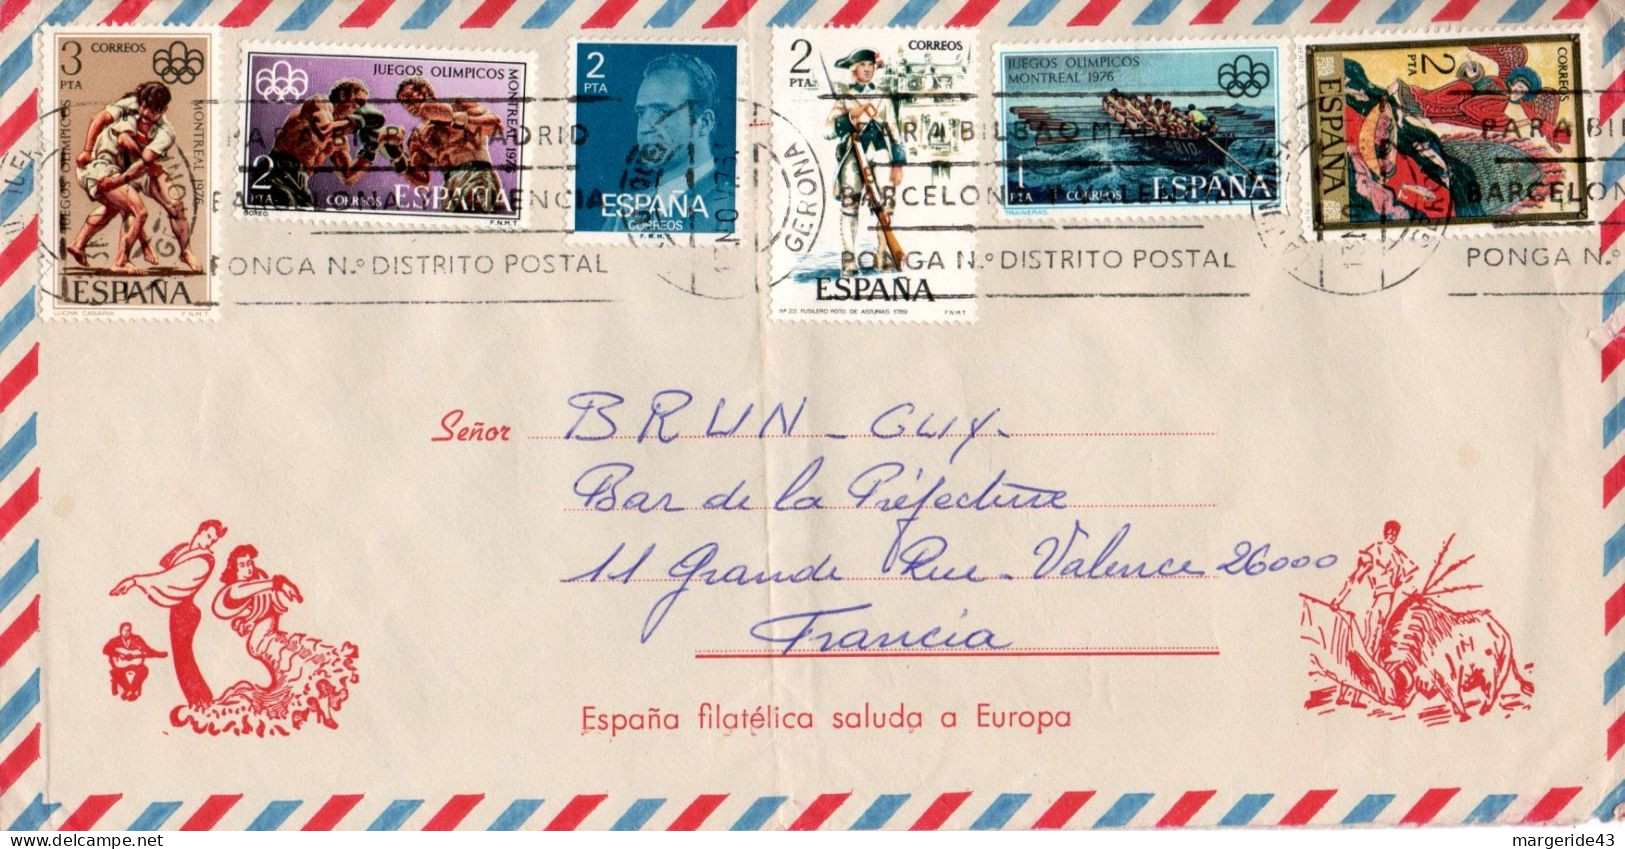 3 PTA CORREOS
JUEGOS OLIMPICOS MONTREAL 1976
ESPAÑA
LUCHA CANARIA F.N.M.T.
JUEGOS OLIMPICOS MONTREAL 1976
2 PTA CORREOS ESPAÑA
BOXEO F.N.M.T.
2 PTA
ESPAÑA
CORREOS
F.N.M.T.
2 PTA CORREOS
ESPAÑA
Nº 22 FUSILERO RGTO DE ASTURIAS 1789 F.N.M.T.
JUEGOS OLIMPICOS
MONTREAL 1976
1 PTA CORREOS ESPAÑA
TRAINERAS F.N.M.T.
CORREOS
2 PTA
ESPAÑA
PARA BILBAO MADRID
BARCELONA VALENCIA
PONGA N.º DISTRITO POSTAL
GERONA
PARA BILBAO MADRID
BARCELONA VALENCIA
PONGA N.º DISTRITO POSTAL
PARA BIL
BARCELON
PONGA N.º
Señor BRUN-GUY-
Bar de la Préfecture
11 Grande Rue-Valence 26000
Francia
España filatélica saluda a Europa
margeride43